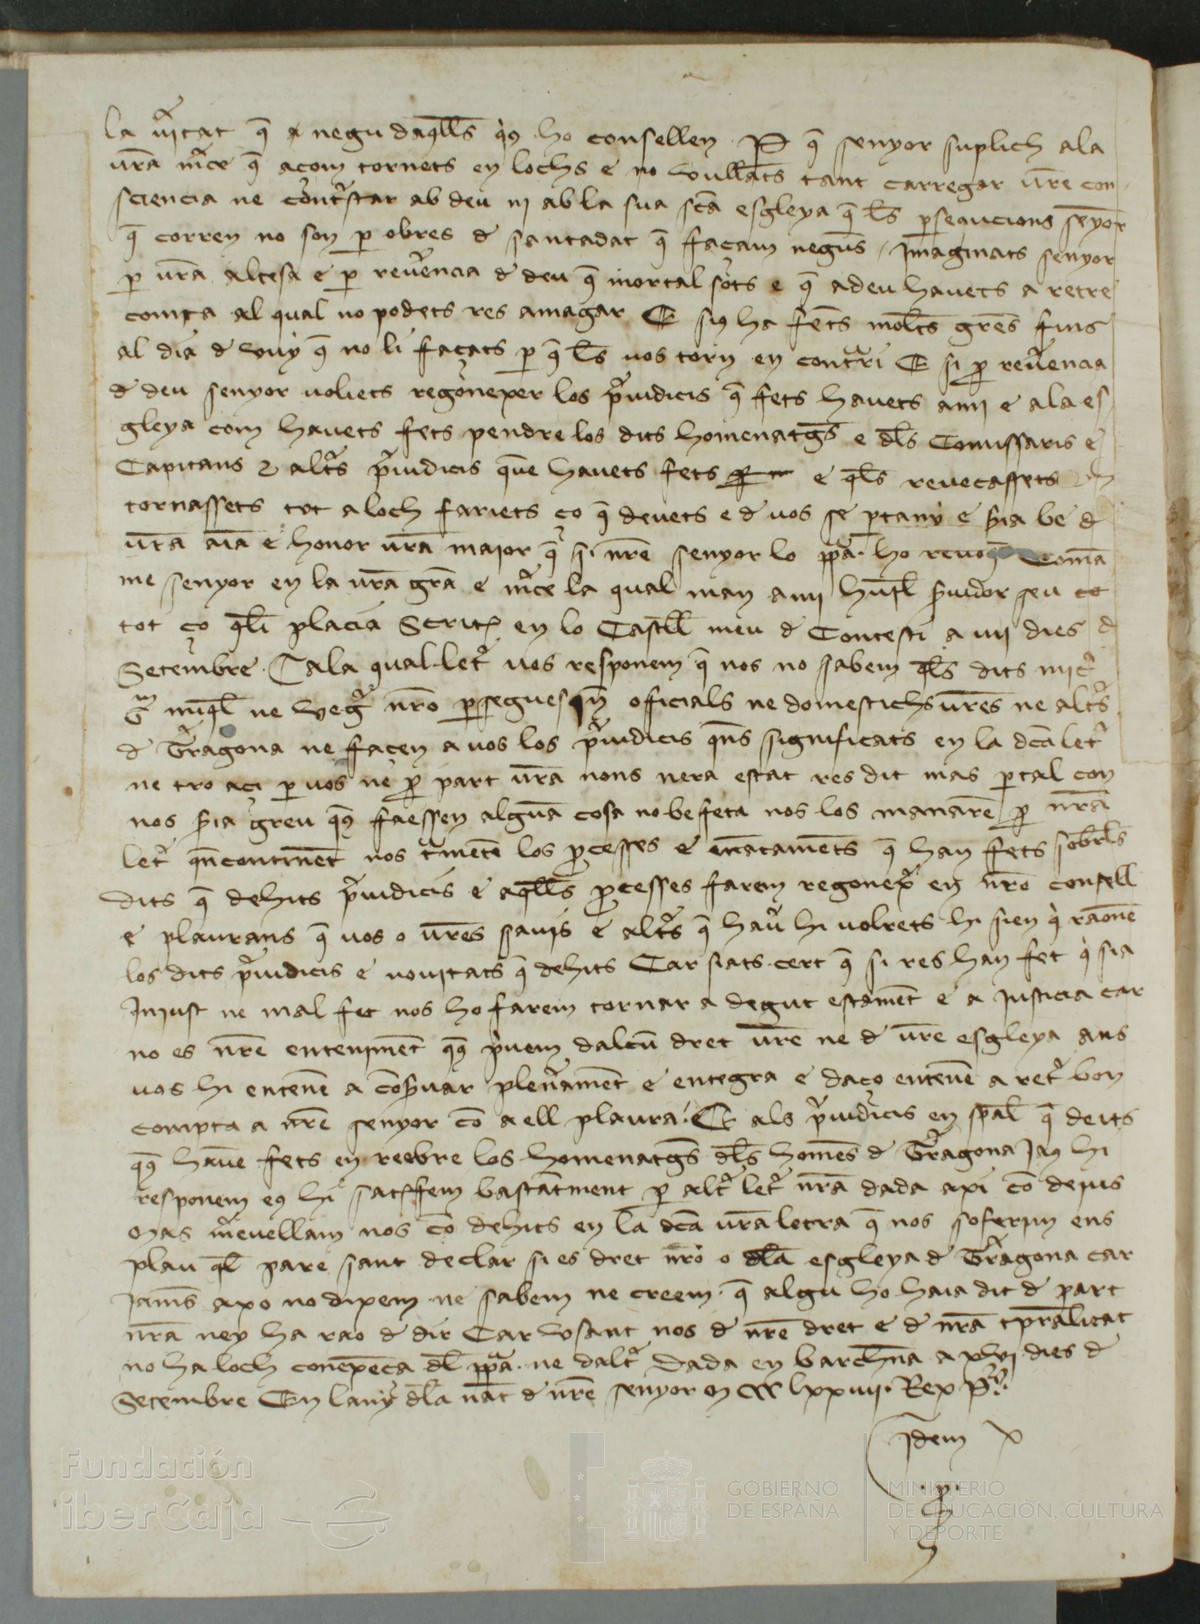 la v̄itat q̄ a negu daq̄lls q̄us ho consellen P q̄ senyor suplich ala
vr̄a mc̄e q̄ açom tornets en lochs e no vullats tant carregar vr̄e con
sciencia ne contrastar ab deu ni ab la sua sc̄a esgleya q̄ ls̄ p̱secucions senyor
q̄ corren no son p̱ obres d santadat q̄ façam neguns Imaginats senyor
p̱ vr̄a altesa e p̱ rev̄encia d deu q̄ mortal sots e q̄ adeu havets a retre
compta al qual no podets res amagar E sius ha fets molts gr̄es fins
al dia d vuy q̄ no li façats p̱ q̄ ls̄ vos torn en contr̄i E si p̱ rev̄encia
d deu senyor voliets regonexer los p̄iudicis q̄ fets havets ami e ala es
gleya com havets fets pendre los dits homenatgs̄ e dl̄s Comissaris e
Capitans e altr̄s p̄iudicis que havets fets e q̄ls revocassets
tornassets tot a loch fariets ço q̄ devets e d vos se p̱tany e s̄ia be d
vr̄a aīa e honor vr̄a maior q̄ si nr̄e senyor lo pp̄a ho revoca Coman
me senyor en la vr̄a gr̄a e mc̄e la qual man ami humil s̄vidor seu
tot ço q̄li placia Scrita en lo Castell meu d Concesti a iiii dies d
Setembre Tala qual letr̄ vos responem q̄ nos no sabem q̄ls dits mic̄
G miq̄l ne Veg̃ nr̄o p̱seguesquen officials ne domestichs vr̄es ne altr̄s
d Tr̄ragona ne façen a vos los p̄iudicis q̄ns significats en la dc̄a letr̄
ne tro aci p̱ vos ne p̱ part vr̄a nons nera estat res dit mas p̱tal com
nos s̄ia greu q̄us faessen alguna cosa no be feta nos los manarē p̱ nr̄a
letr̄ q̄ncontinent nos tr̄metē los p̱cesses e enantamēts q̄ han fets sobrels
dits q̄ dehits p̄iudicis e aq̄lls p̱cesses farem regonexer en nr̄o consell
e plaurans q̄ vos o vr̄es savis e altr̄s q̄ hav̄ hi volrets hi sien q̄ raonē
los dits p̄iudicis e novitats q̄ dehits Car siats cert q̄ si res han fet q̄ sia
Iniust ne mal fet nos ho farem tornar a degut estamēt e a Iusticia car
no es nr̄e entenimēt q̄us p̄vem dalcū dret vr̄e ne d vr̄e esgleya ans
vos hi entenē a cōs̄var plen̄amēt e entegra e daço entenē a retr̄ bon
compta a nr̄e senyor cō a ell plaura Et als p̄iudicis en sp̄al q̄ deits
q̄us havē fets en reebre los homenatgs̄ dl̄s homēs d Tr̄ragona Ia hi
responem eus hi satisfem bastātment p̱ altr̄ letr̄ nr̄a dada axi cō deius
Mas m̄evellam nos cō dehits en la dc̄a vr̄a letra q̄ nos soferim ens
plau q̄l pare sant declar si es dret nr̄o o dl̄a esgleya d Tr̄ragona car
Iamēs axo no dixem ne sabem ne creem q̄ algu ho haia dit d part
nr̄a ney ha rao d dir Car Vsant nos d nr̄e dret e d nr̄a tp̄ralitat
no ha loch conexēça dl̄ pp̄a ne daltr̄ Dada en barchn̄a a xvi dies d
Setembre En lany dl̄a nat̄ d nr̄e senyor M CCC lxxiiii Rex P̱
Idem
p̱
Fundación
iberCaja
GOBIERNO
DE ESPAÑA
MINISTERIO
DE EDUCACIÓN, CULTURA
Y DEPORTE